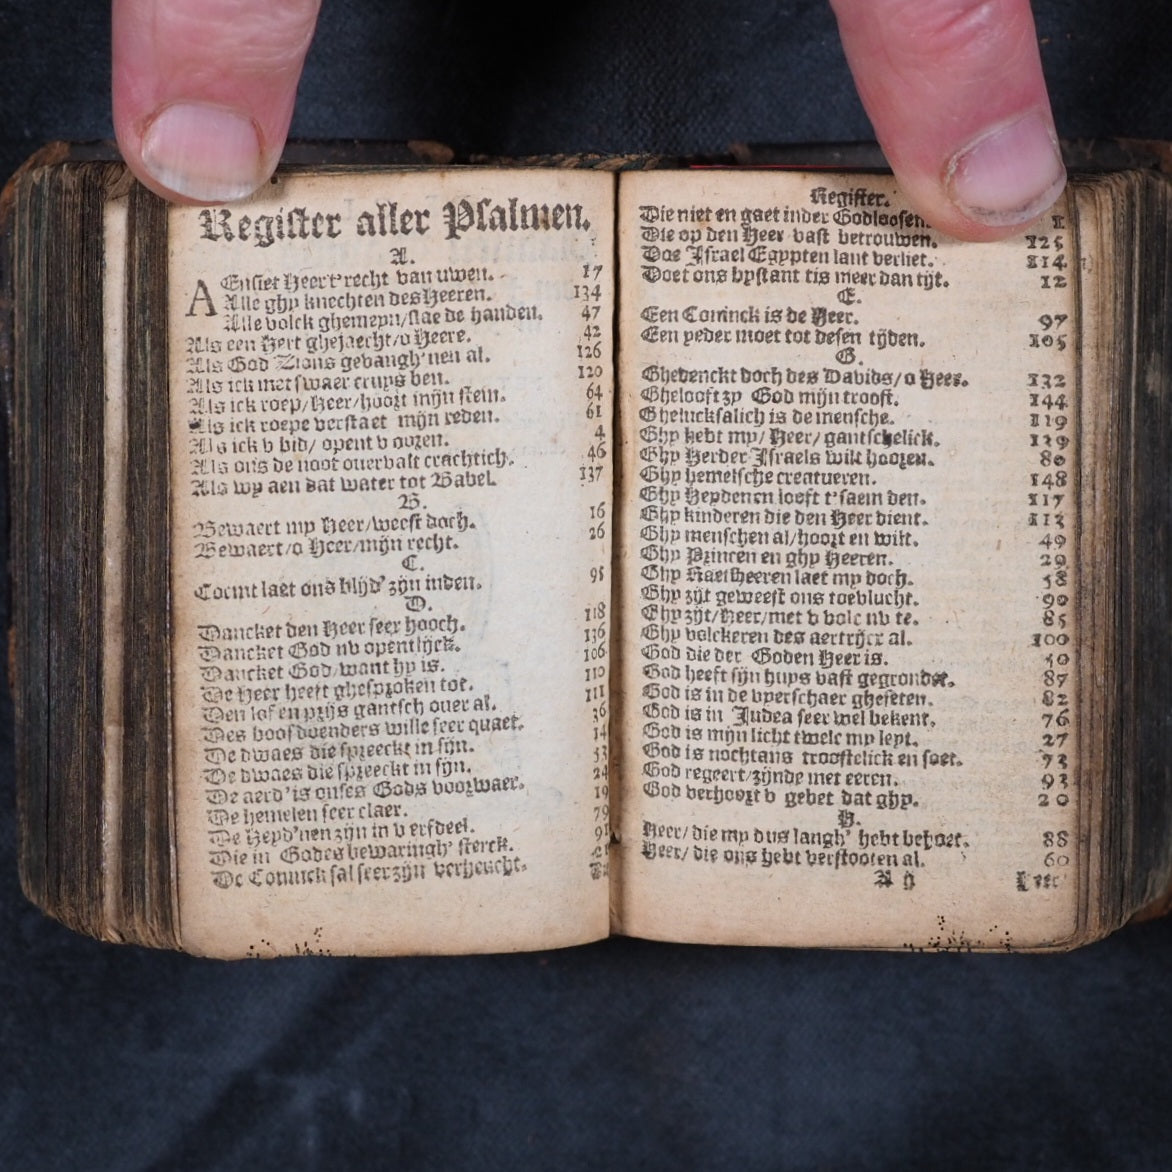 Register aller Psalmen.
A.
AEnsiet Heer t'recht van uwen. 17
Alle ghy knechten des Heeren. 134
Alle volck ghemeyn/slae de handen. 47
Als een Hert ghejaecht/o Heere. 42
Als God Zions gevangh'nen al. 126
Als ick met swaer cruys ben. 120
Als ick roep/Heer/hoort mijn stem. 64
Als ick roepe verstaet mijn reden. 61
Als ick v bid/ opent v ooren. 4
Als ons de noot overvalt crachtich. 46
Als wy aen dat water tot Babel. 137
B.
Bewaert my Heer/weest doch. 16
Bewaert/o Heer/mijn recht. 26
C.
Coemt laet ons blijd' zijn inden. 95
D.
Dancket den Heer seer hooch. 118
Dancket God nv opentlijck. 136
Dancket God/want hy is. 106
De Heer heeft ghesproken tot. 110
Den lof en prijs gantsch ouer al. 111
Des boosdoenders wille seer quaet. 36
De dwaes die spreeckt in sijn. 14
De dwaes die spreeckt in sijn. 53
De aerd' is onses Gods voorwaer. 24
De hemelen seer claer. 19
De Heyd'nen zijn in v erfdeel. 79
Die in Godes bewaringh' sterck. 91
De Coninck sal seer zijn verheucht. 21
Register.
Die niet en gaet inder Godloosen. 1
Die op den Heer vast betrouwen. 125
Doe Israel Egypten lant verliet. 114
Doet ons bystant tis meer dan tijt. 12
E.
Een Coninck is de Heer. 97
Een yeder moet tot desen tijden. 105
G.
Ghedenckt doch des Davids/o Heer. 132
Ghelooft zy God mijn troost. 144
Ghelucksalich is de mensche. 119
Ghy hebt my/ Heer/ gantschelick. 139
Ghy Herder Israels wilt hooren. 80
Ghy hemelsche creatueren. 148
Ghy Heydenen looft t'samen den. 117
Ghy kinderen die den Heer dient. 113
Ghy menschen al/hoort en wilt. 49
Ghy Princen en ghy Heeren. 29
Ghy Raetsheeren laet my doch. 58
Ghy zijt geweest ons toevlucht. 90
Ghy zijt/Heer/met v volc nv te. 85
Ghy volckeren des aertrijcx al. 100
God die der Goden Heer is. 50
God heeft sijn huys vast gegrondet. 87
God is in de vyerschaer gheseten. 82
God is in Judea seer wel bekent. 76
God is mijn licht twelc my leyt. 27
God is nochtans troostelick en soet. 73
God regeert/zijnde met eeren. 93
God verhoort v gebet dat ghy. 20
H.
Heer/ die my dus langh' hebt behoet. 88
Heer/ die ons hebt verstooten al. 60
A ij Heer